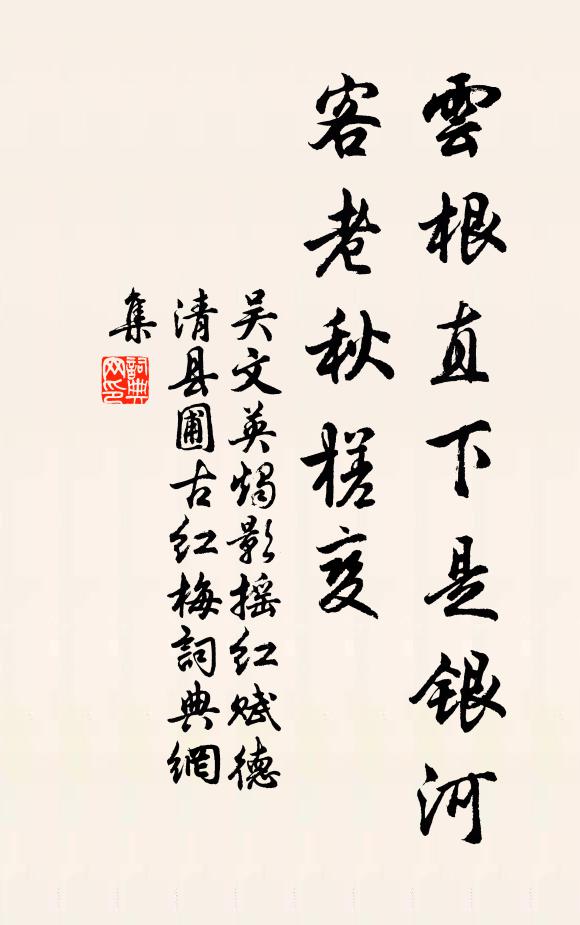 雲根直下是銀河
客老秋槎变
吴文英燭影摇红赋德
清县圃古红梅詞典網
集
詞典网印